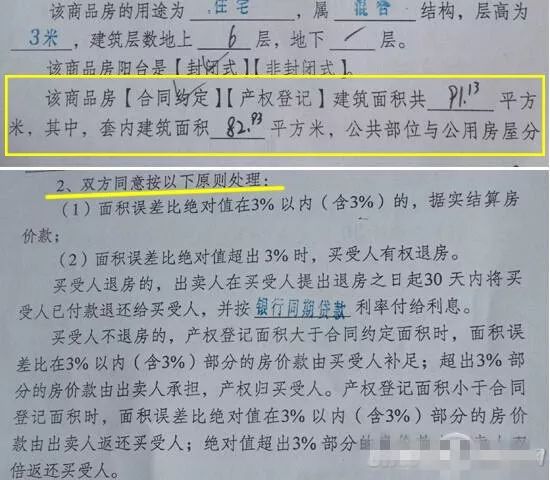 该商品房的用途为 住宅 ，属 混合 结构，层高为
3米 ，建筑层数地上 6 层，地下 / 层。
该商品房阳台是【封闭式】【非封闭式】。
该商品房【合同约定】【产权登记】建筑面积共 91.13 平方
米，其中，套内建筑面积 82.93 平方米，公共部位与公用房屋分
2、双方同意按以下原则处理：
（1）面积误差比绝对值在3%以内（含3%）的，据实结算房
价款；
（2）面积误差比绝对值超出3%时，买受人有权退房。
买受人退房的，出卖人在买受人提出退房之日起30天内将买
受人已付款退还给买受人，并按 银行同期贷款 利率付给利息。
买受人不退房的，产权登记面积大于合同约定面积时，面积误
差比在3%以内（含3%）部分的房价款由买受人补足；超出3%部
分的房价款由出卖人承担，产权归买受人。产权登记面积小于合同
登记面积时，面积误差比绝对值在3%以内（含3%）部分的房价
款由出卖人返还买受人；绝对值超出3%部分的房价款
倍返还买受人。